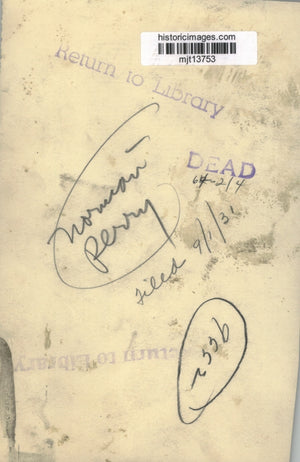 historicimages.com
mjt13753
Return to Library
DEAD
64-214
Norman
Perry
Filed 9/1/31
Return to Library